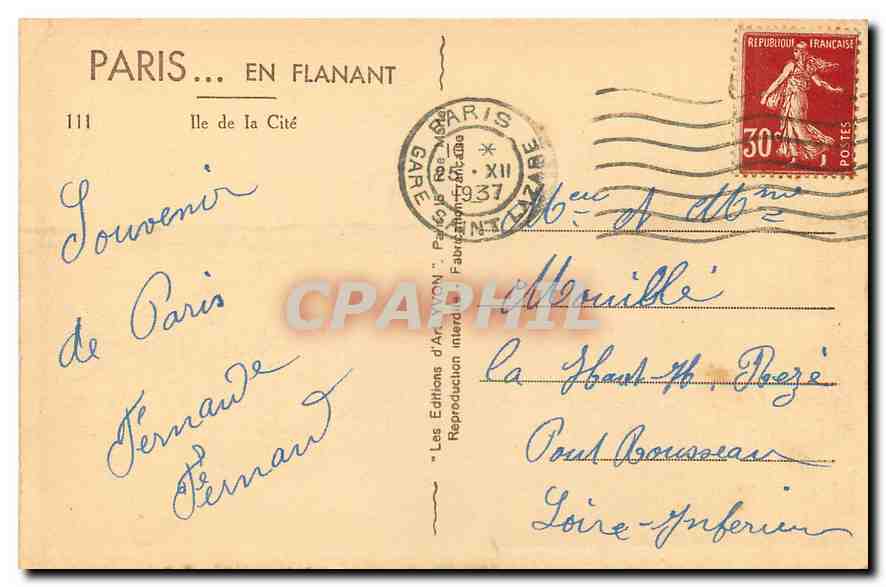 PARIS... EN FLANANT
111 Ile de la Cité
Souvenir
de Paris
Fernande
Fernand
"Les Editions d'Art YVON". Paris, 15 Rue
Reproduction interdite. Fabrication Française
PARIS
GARE SAINT-LAZARE
XII
1937
REPUBLIQUE FRANÇAISE
30c
POSTES
Mr et Mme
Mouillé
La Haut-, Rezé
Pont Rousseau
Loire-Inferieu
CPAPHIL